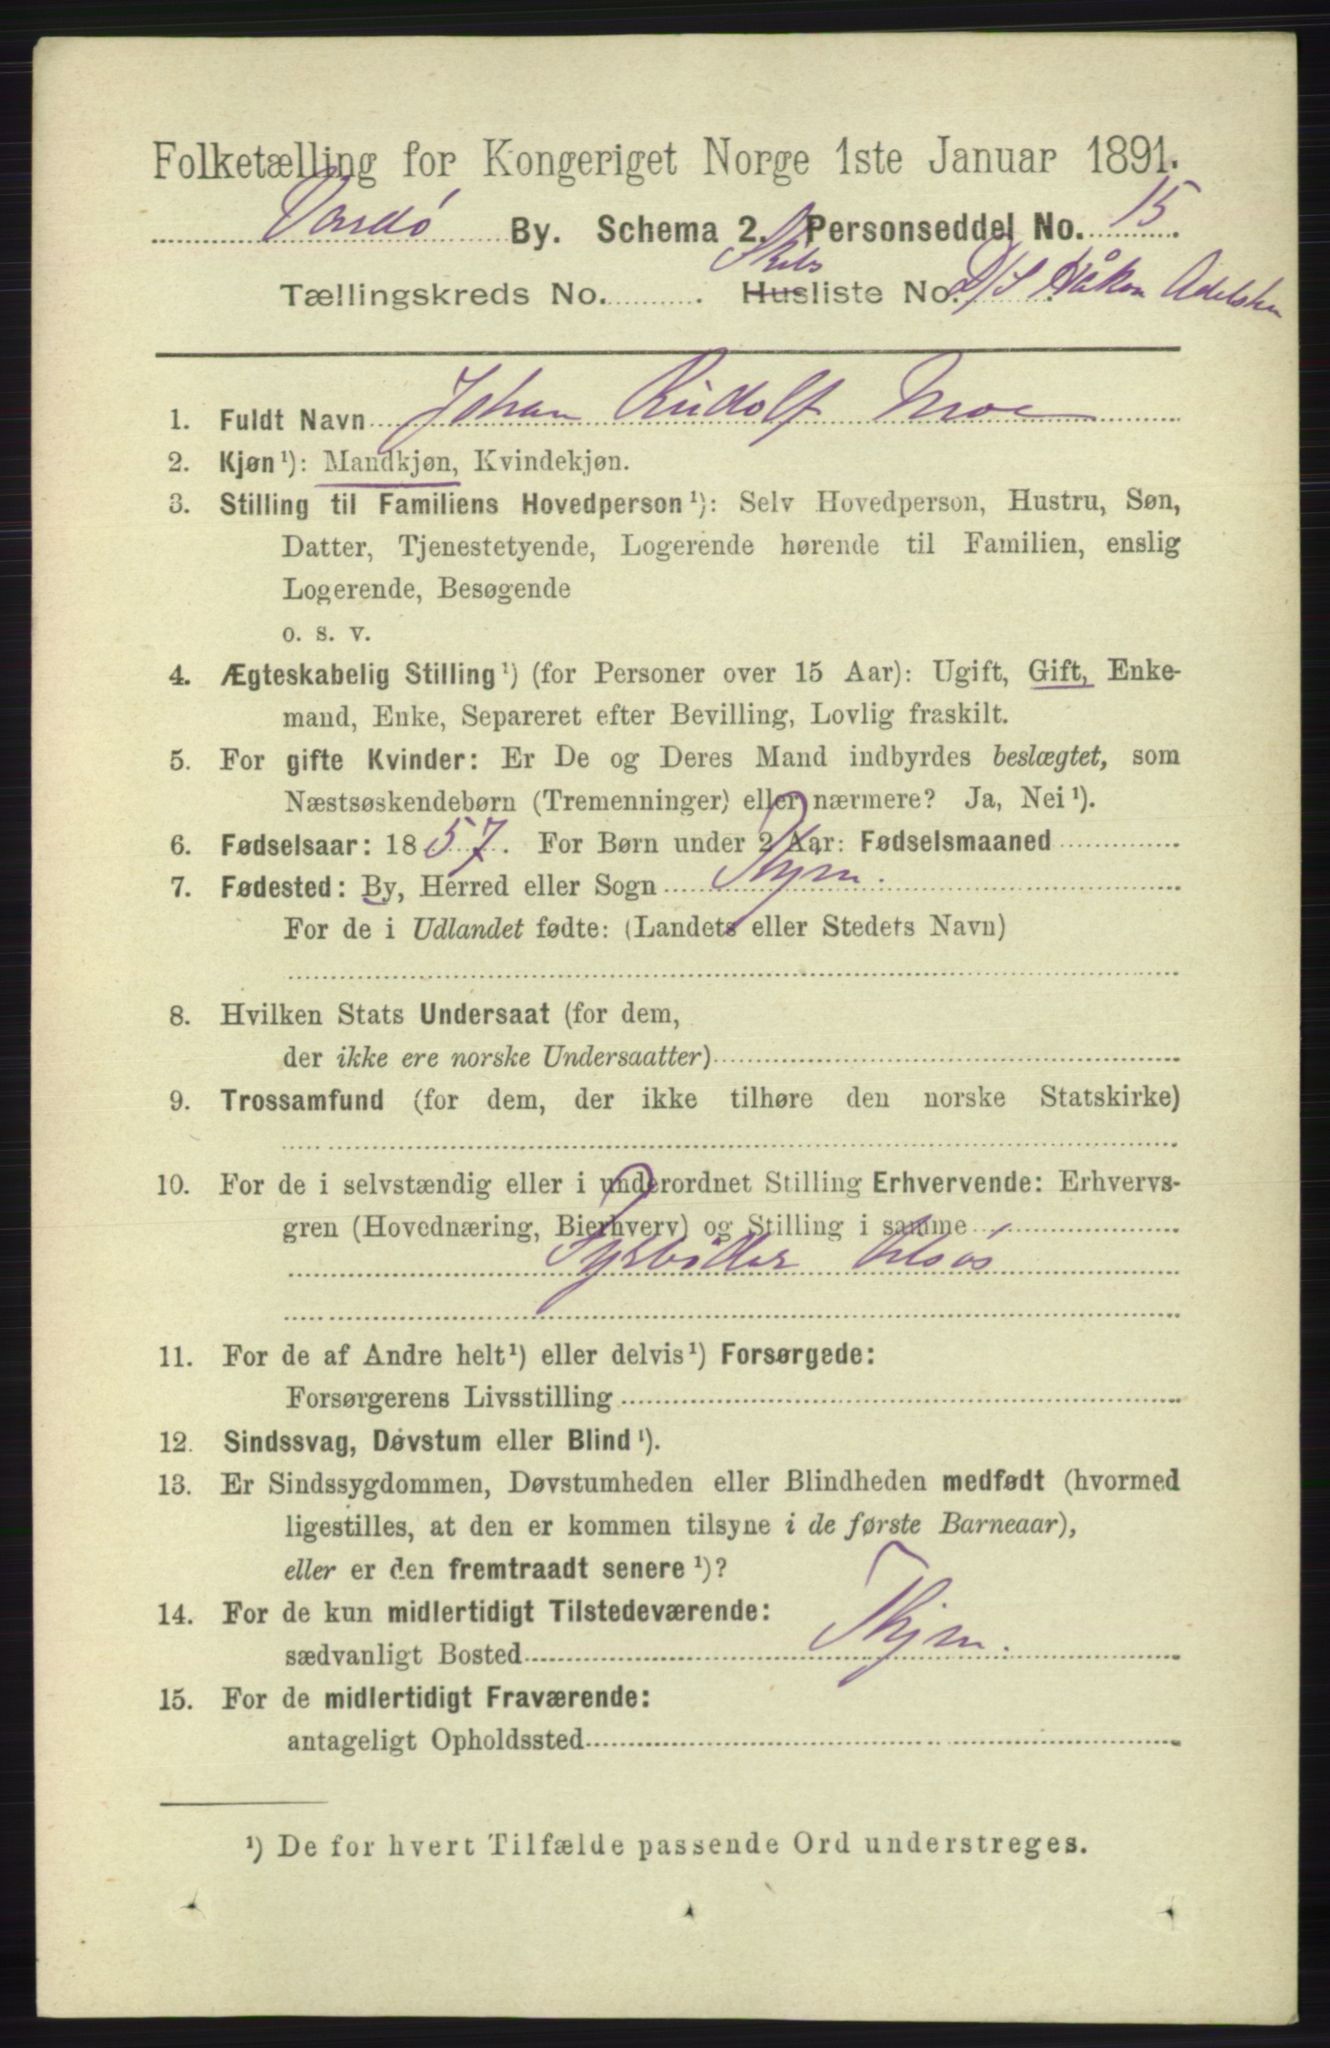 Folketælling for Kongeriget Norge 1ste Januar 1891.
Vardø By. Schema 2. Personseddel No. 15
Skibs
Tællingskreds No. Husliste No. D/S Håkon Adelsten
1. Fuldt Navn Johan Rudolf Moe
2. Kjøn¹): Mandkjøn, Kvindekjøn.
3. Stilling til Familiens Hovedperson¹): Selv Hovedperson, Hustru, Søn,
Datter, Tjenestetyende, Logerende hørende til Familien, enslig
Logerende, Besøgende
o. s. v.
4. Ægteskabelig Stilling¹) (for Personer over 15 Aar): Ugift, Gift, Enke-
mand, Enke, Separeret efter Bevilling, Lovlig fraskilt.
5. For gifte Kvinder: Er De og Deres Mand indbyrdes beslægtet, som
Næstsøskendebørn (Tremenninger) eller nærmere? Ja, Nei¹).
6. Fødselsaar: 1857. For Børn under 2 Aar: Fødselsmaaned
7. Fødested: By, Herred eller Sogn Thjm.
For de i Udlandet fødte: (Landets eller Stedets Navn)
8. Hvilken Stats Undersaat (for dem,
der ikke ere norske Undersaatter)
9. Trossamfund (for dem, der ikke tilhøre den norske Statskirke)
10. For de i selvstændig eller i underordnet Stilling Erhvervende: Erhvervs-
gren (Hovednæring, Bierhverv) og Stilling i samme
Fyrbøder
11. For de af Andre helt¹) eller delvis¹) Forsørgede:
Forsørgerens Livsstilling
12. Sindssvag, Døvstum eller Blind¹).
13. Er Sindssygdommen, Døvstumheden eller Blindheden medfødt (hvormed
ligestilles, at den er kommen tilsyne i de første Barneaar),
eller er den fremtraadt senere¹)?
14. For de kun midlertidigt Tilstedeværende:
sædvanligt Bosted Thjm.
15. For de midlertidigt Fraværende:
antageligt Opholdssted
¹) De for hvert Tilfælde passende Ord understreges.